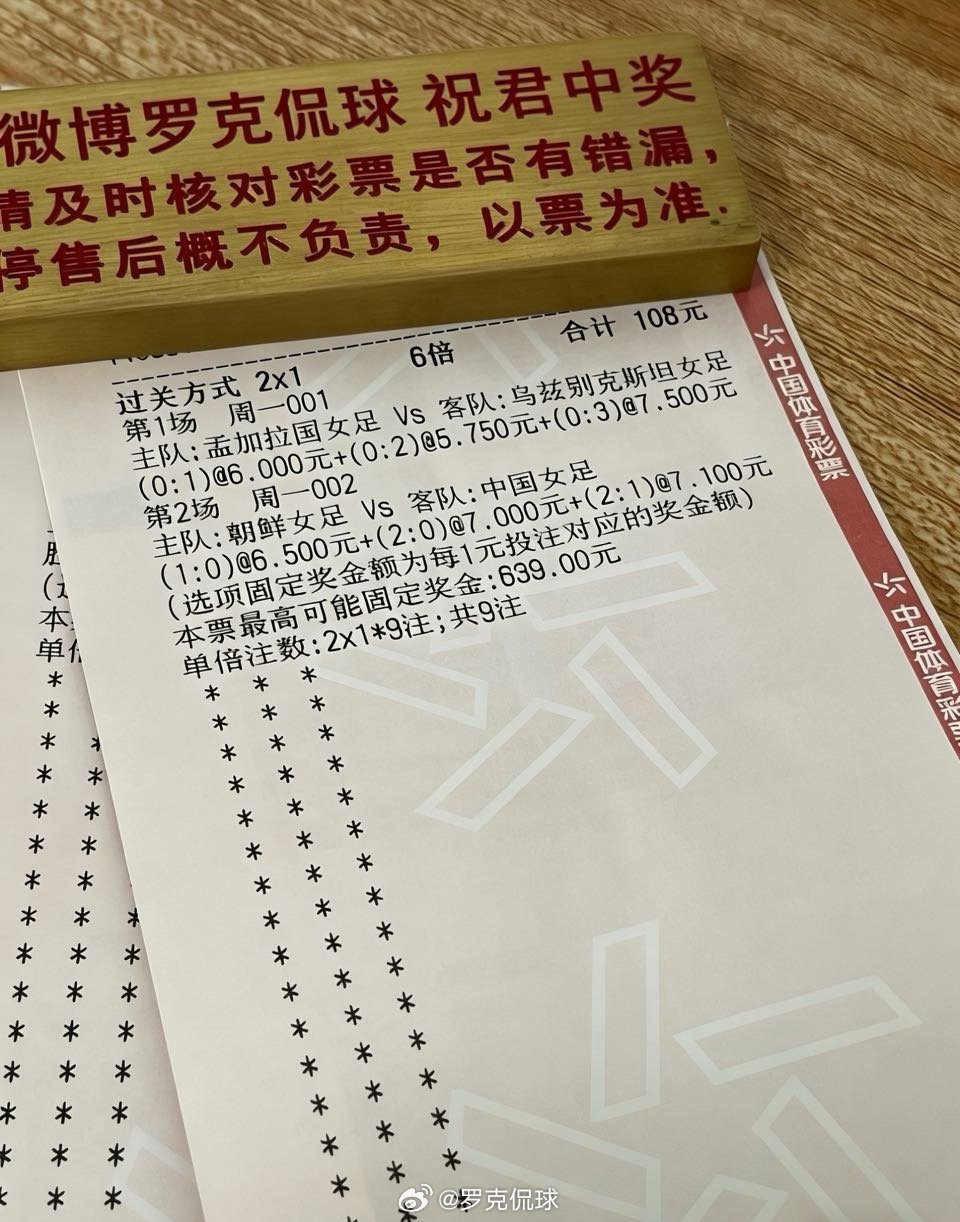 微博罗克侃球 祝君中奖
请及时核对彩票是否有错漏，
停售后概不负责，以票为准.
过关方式 2x1 6倍 合计 108元
第1场 周一001
主队:孟加拉国女足 Vs 客队:乌兹别克斯坦女足
(0:1)@6.000元+(0:2)@5.750元+(0:3)@7.500元
第2场 周一002
主队:朝鲜女足 Vs 客队:中国女足
(1:0)@6.500元+(2:0)@7.000元+(2:1)@7.100元
(选项固定奖金额为每1元投注对应的奖金额)
本票最高可能固定奖金:639.00元
单倍注数:2x1*9注;共9注
中国体育彩票
中国体育彩票
本
单倍
@罗克侃球